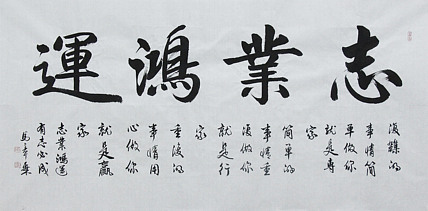 志業鴻運
複雜的
事情簡
單做你
就是專
家
簡單的
事情重
複做你
就是行
家
重複的
事情用
心做你
就是贏
家
志業鴻運
有志必成